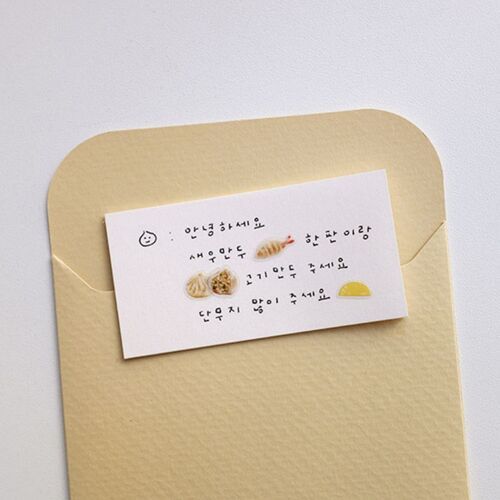 : 안녕하세요
새우만두 한판이랑
고기만두 주세요
단무지 많이 주세요